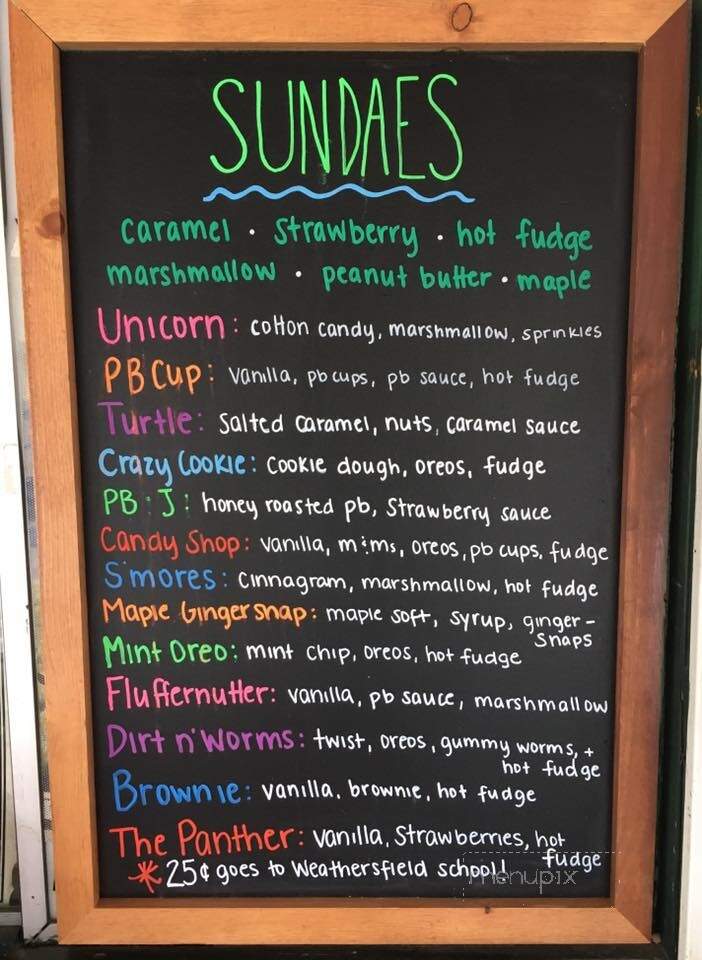 SUNDAES
caramel · strawberry · hot fudge
marshmallow · peanut butter · maple
Unicorn: cotton candy, marshmallow, sprinkles
PB Cup: vanilla, pb cups, pb sauce, hot fudge
Turtle: salted caramel, nuts, caramel sauce
Crazy Cookie: cookie dough, oreos, fudge
PB·J: honey roasted pb, strawberry sauce
Candy Shop: vanilla, m&ms, oreos, pb cups, fudge
S'mores: cinnagram, marshmallow, hot fudge
Maple Ginger snap: maple soft, syrup, ginger-
snaps
Mint Oreo: mint chip, oreos, hot fudge
Fluffernutter: vanilla, pb sauce, marshmallow
Dirt n' Worms: twist, oreos, gummy worms, +
hot fudge
Brownie: vanilla, brownie, hot fudge
The Panther: vanilla, strawberries, hot
fudge
* 25¢ goes to Weathersfield school!
menupix